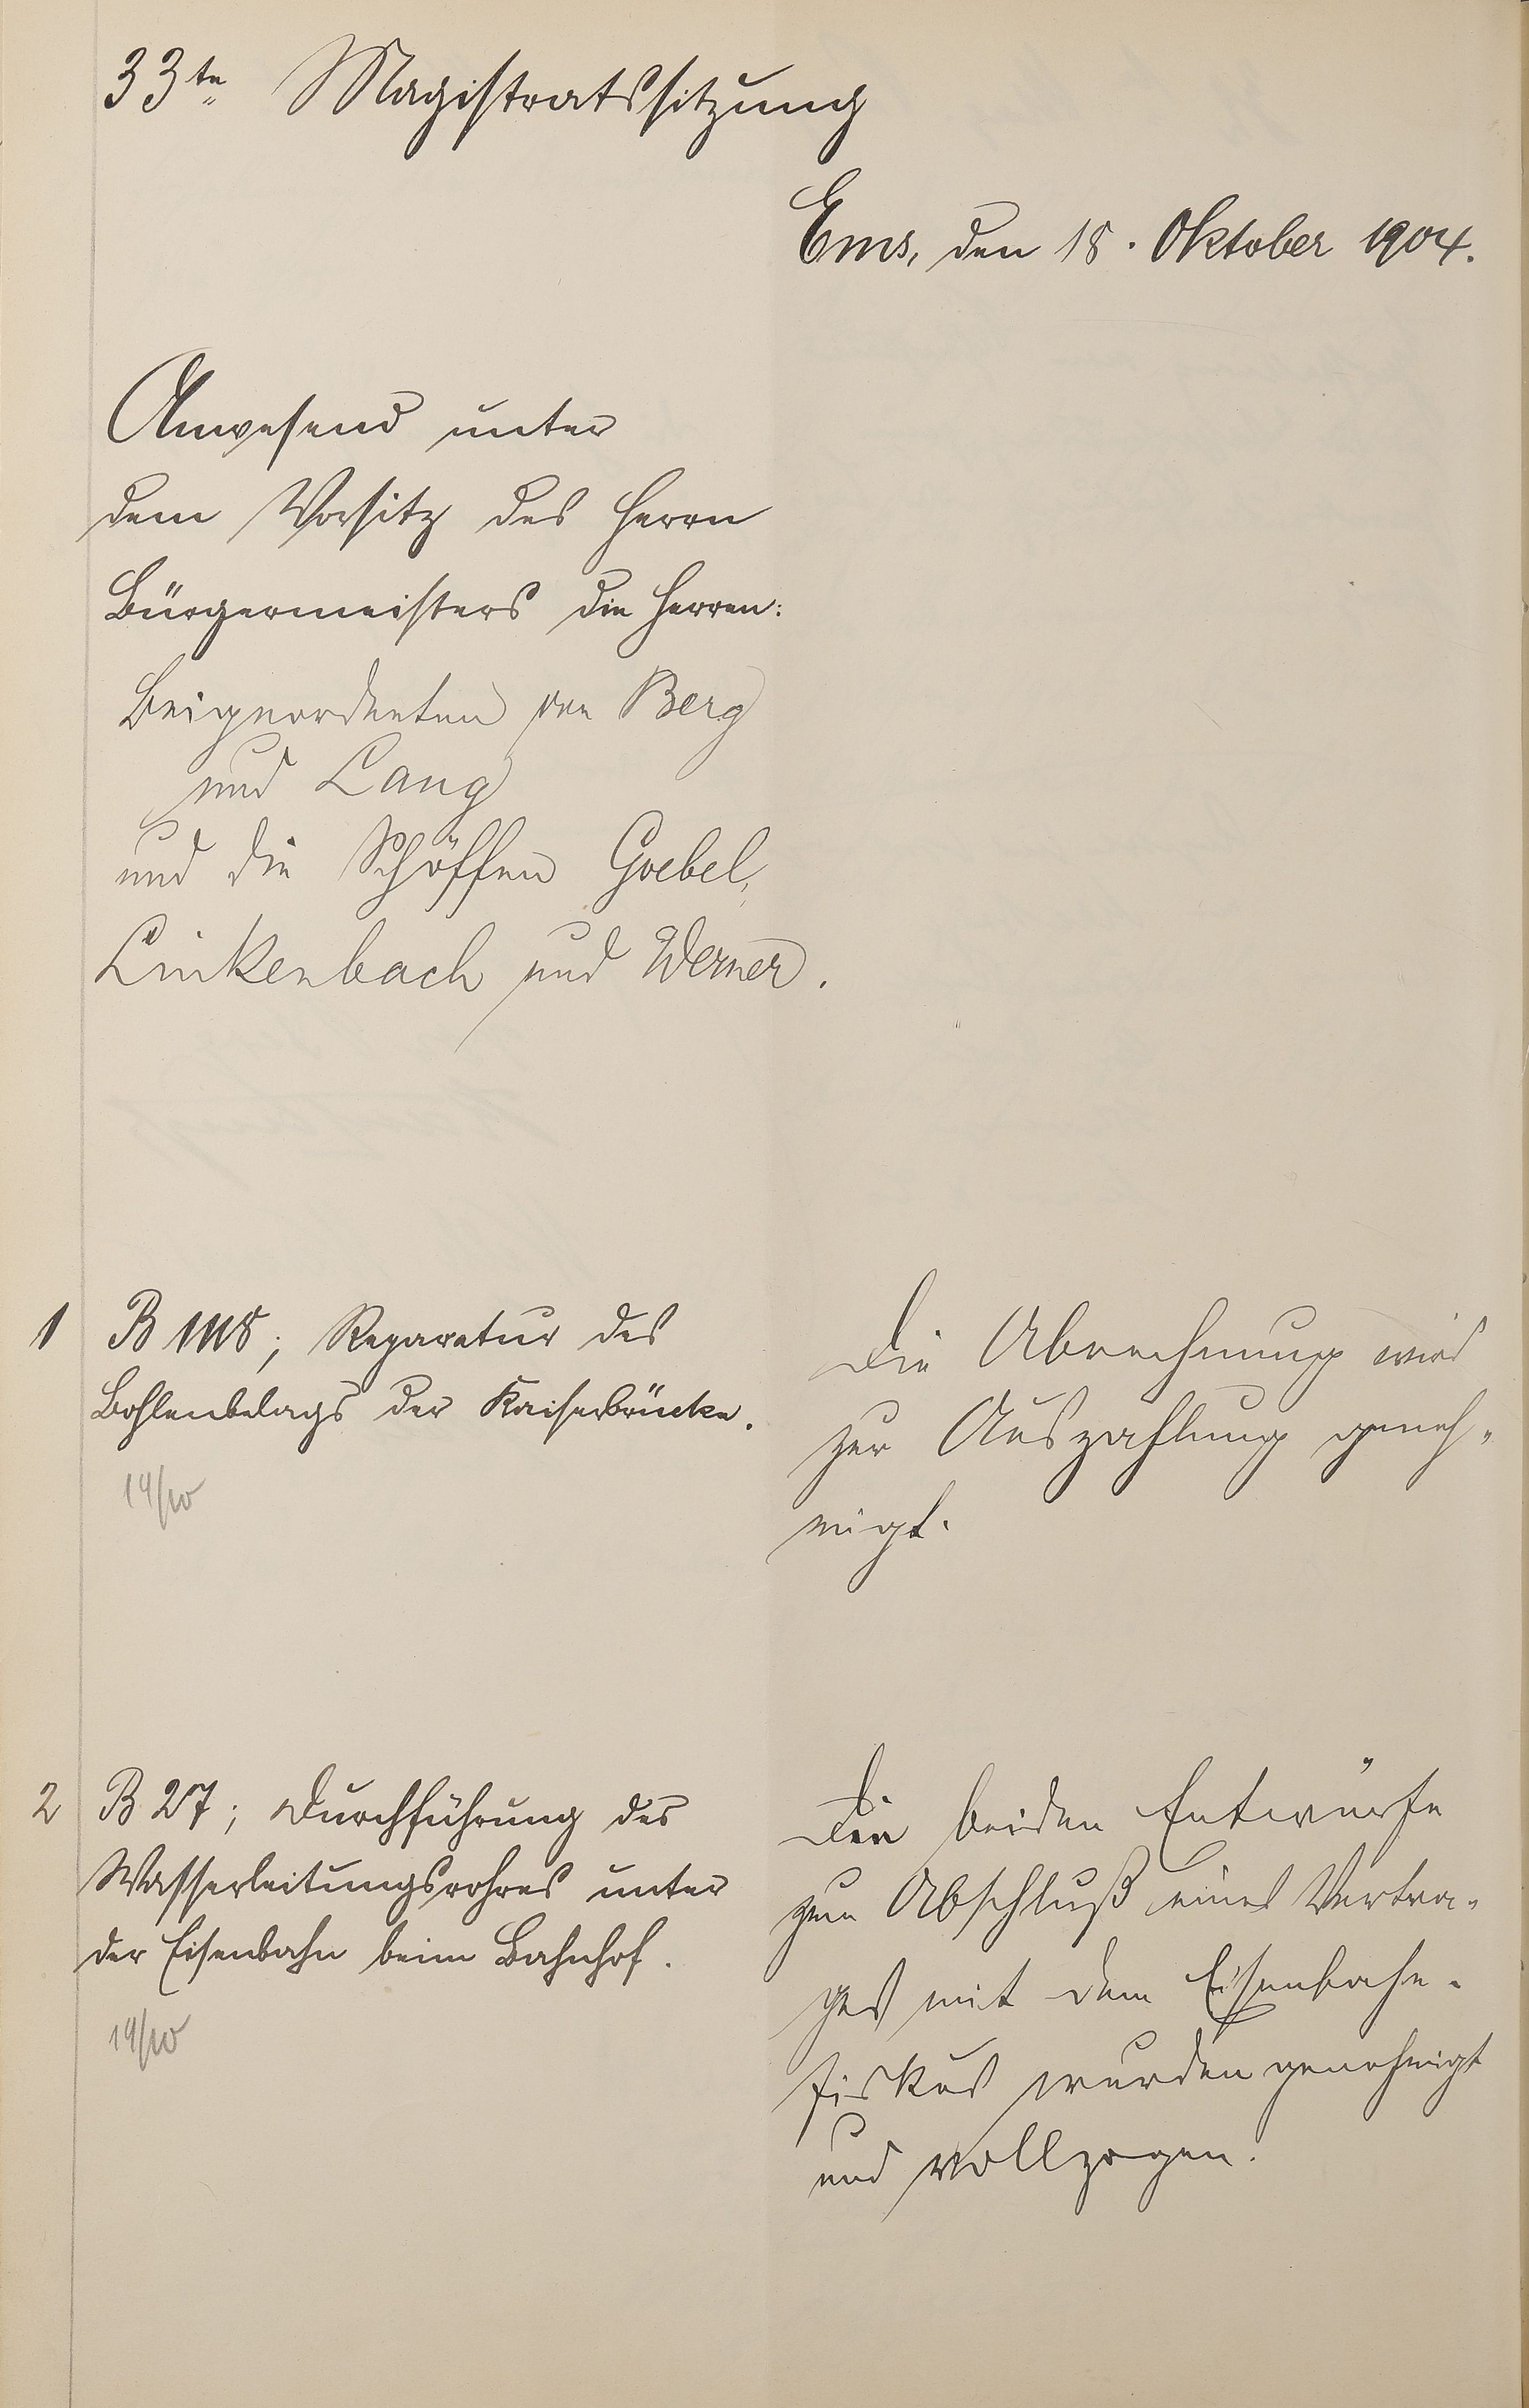 33te Magistratssitzung
Ems, den 18. Oktober 1904.
Anwesend unter
dem Vorsitz des Herrn
Bürgermeisters die Herren:
Beigeordneten von Berg
und Lang
und die Schöffen Goebel,
Linkenbach und Werner.
1 B 1118; Reparatur des
Bohlenbelags der Kaiserbrücke.
19/10
Die Abrechnung wird
zur Auszahlung geneh-
migt.
2 B 27; Durchführung des
Wasserleitungsrohres unter
der Eisenbahn beim Bahnhof.
19/10
Die beiden Entwürfe
zum Abschluß eines Vertra-
ges mit dem Eisenbahn-
fiskus wurden genehmigt
und vollzogen.